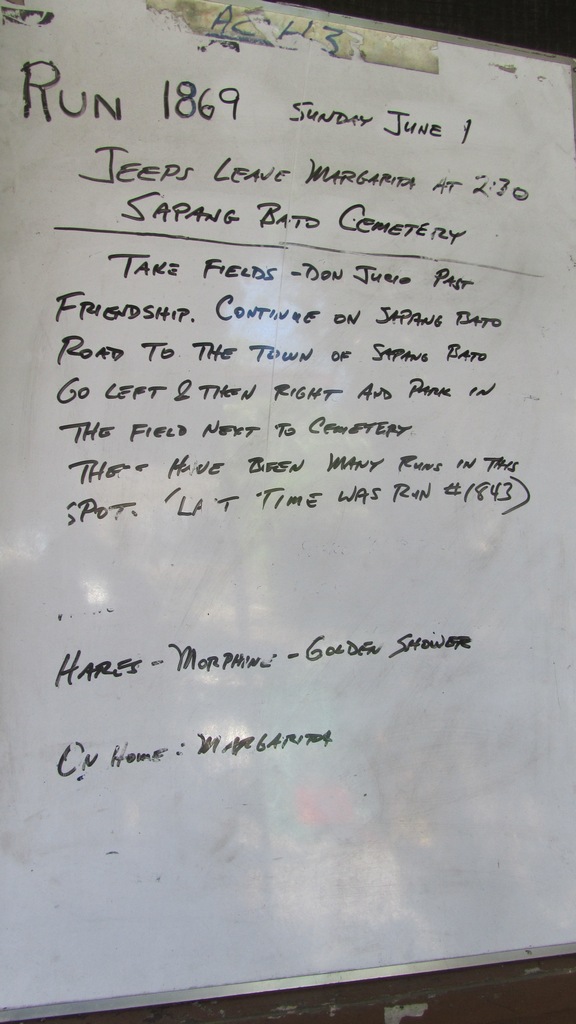 AC H3
RUN 1869 SUNDAY JUNE 1
JEEPS LEAVE MARGARITA AT 2:30
SAPANG BATO CEMETERY
TAKE FIELDS - DON JUICO PAST
FRIENDSHIP. CONTINUE ON SAPANG BATO
ROAD TO THE TOWN OF SAPANG BATO
GO LEFT & THEN RIGHT AND PARK IN
THE FIELD NEXT TO CEMETERY
HAVE BEEN MANY RUNS IN THIS
SPOT. (LAST TIME WAS RUN #1843)
HARES - MORPHINE - GOLDEN SHOWER
ON HOME: MARGARITA